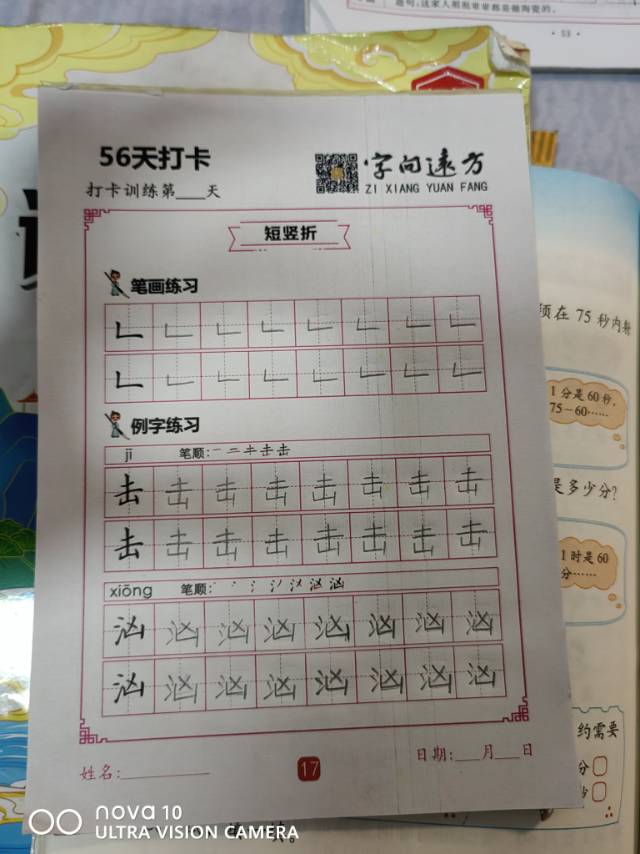 · 53 ·
56天打卡
字向远方
打卡训练第___天
ZI XIANG YUAN FANG
短竖折
笔画练习
例字练习
jī 笔顺:
击 击 击 击 击 击 击 击
击 击 击 击 击 击 击 击
xiōng 笔顺:
汹 汹 汹 汹 汹 汹 汹 汹
汹 汹 汹 汹 汹 汹 汹 汹
姓名:
17
日期:___月___日
在 75 秒内
1分是60秒,
75-60……
是多少分?
1时是60
分……
约需要
分
nova 10
ULTRA VISION CAMERA